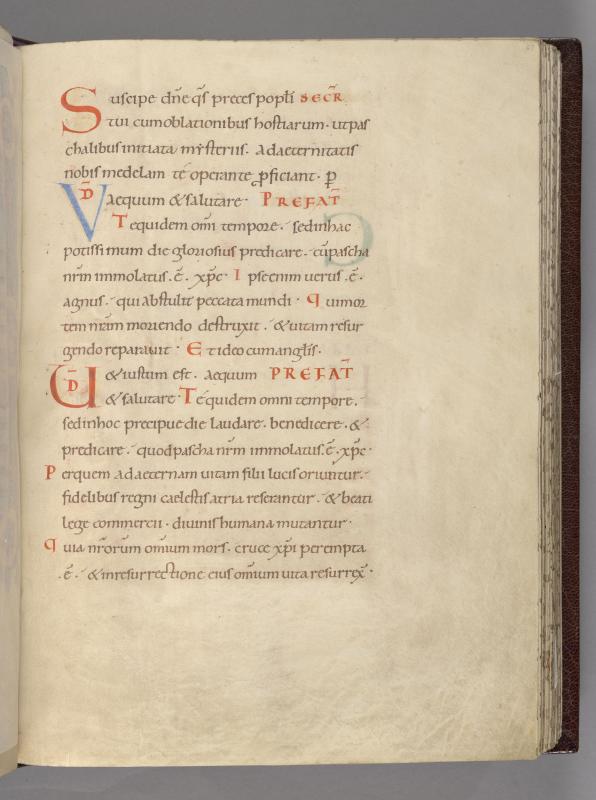 Suscipe dn̄e q̄s preces popl̄i SECR̄
tui cum oblationibus hostiarum. ut pas
chalibus initiata mysteriis. Ad aeternitatis
nobis medelam te operante ꝑficiant. ꝑ
VD̄ Aequum & salutare. PREFAT̄
Te quidem om̄i tempore. sed in hac
potissimum die gloriosius predicare. cū pascha
nr̄m immolatus .ē. xp̄c. Ipse enim uerus .ē.
agnus. qui abstulit peccata mundi. Qui mor
tem nr̄am moriendo destruxit. & uitam resur
gendo reparauit. Et ideo cum anglīs.
UD̄ & iustum est. Aequum PREFAT̄
& salutare. Te quidem omni tempore.
sed in hoc precipue die laudare. benedicere. &
predicare. quod pascha nr̄m immolatus .ē. xp̄c.
Per quem ad aeternam uitam filii lucis oriuntur.
fidelibus regni caelestis atria reserantur. & beati
lege commercii. diuinis humana mutantur.
Quia nr̄orum om̄ium mors. cruce xp̄i perempta
.ē. & in resurrectione eius om̄ium uita resurrex̄.